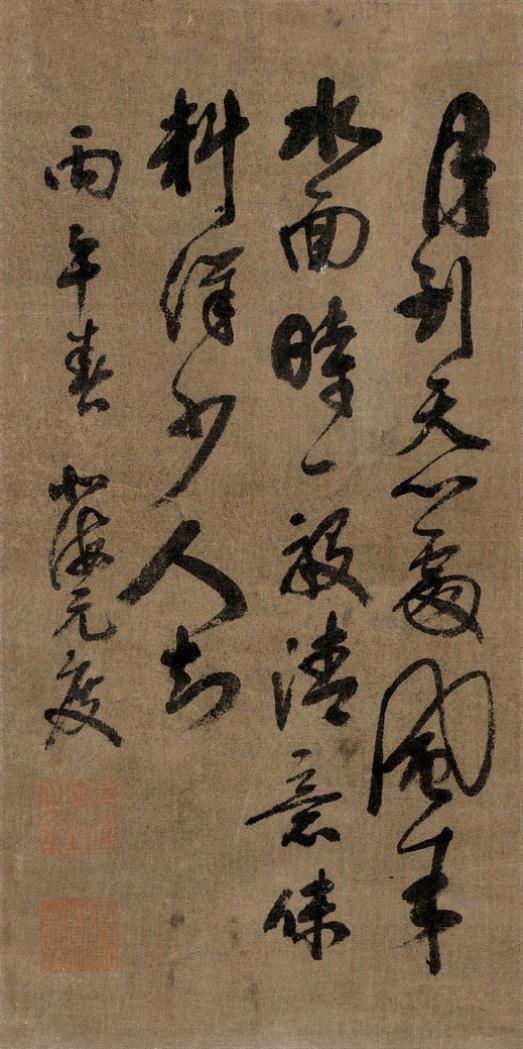 月到天心處風來
水面時一般清意味
料得少人知
丙午春 北海元度